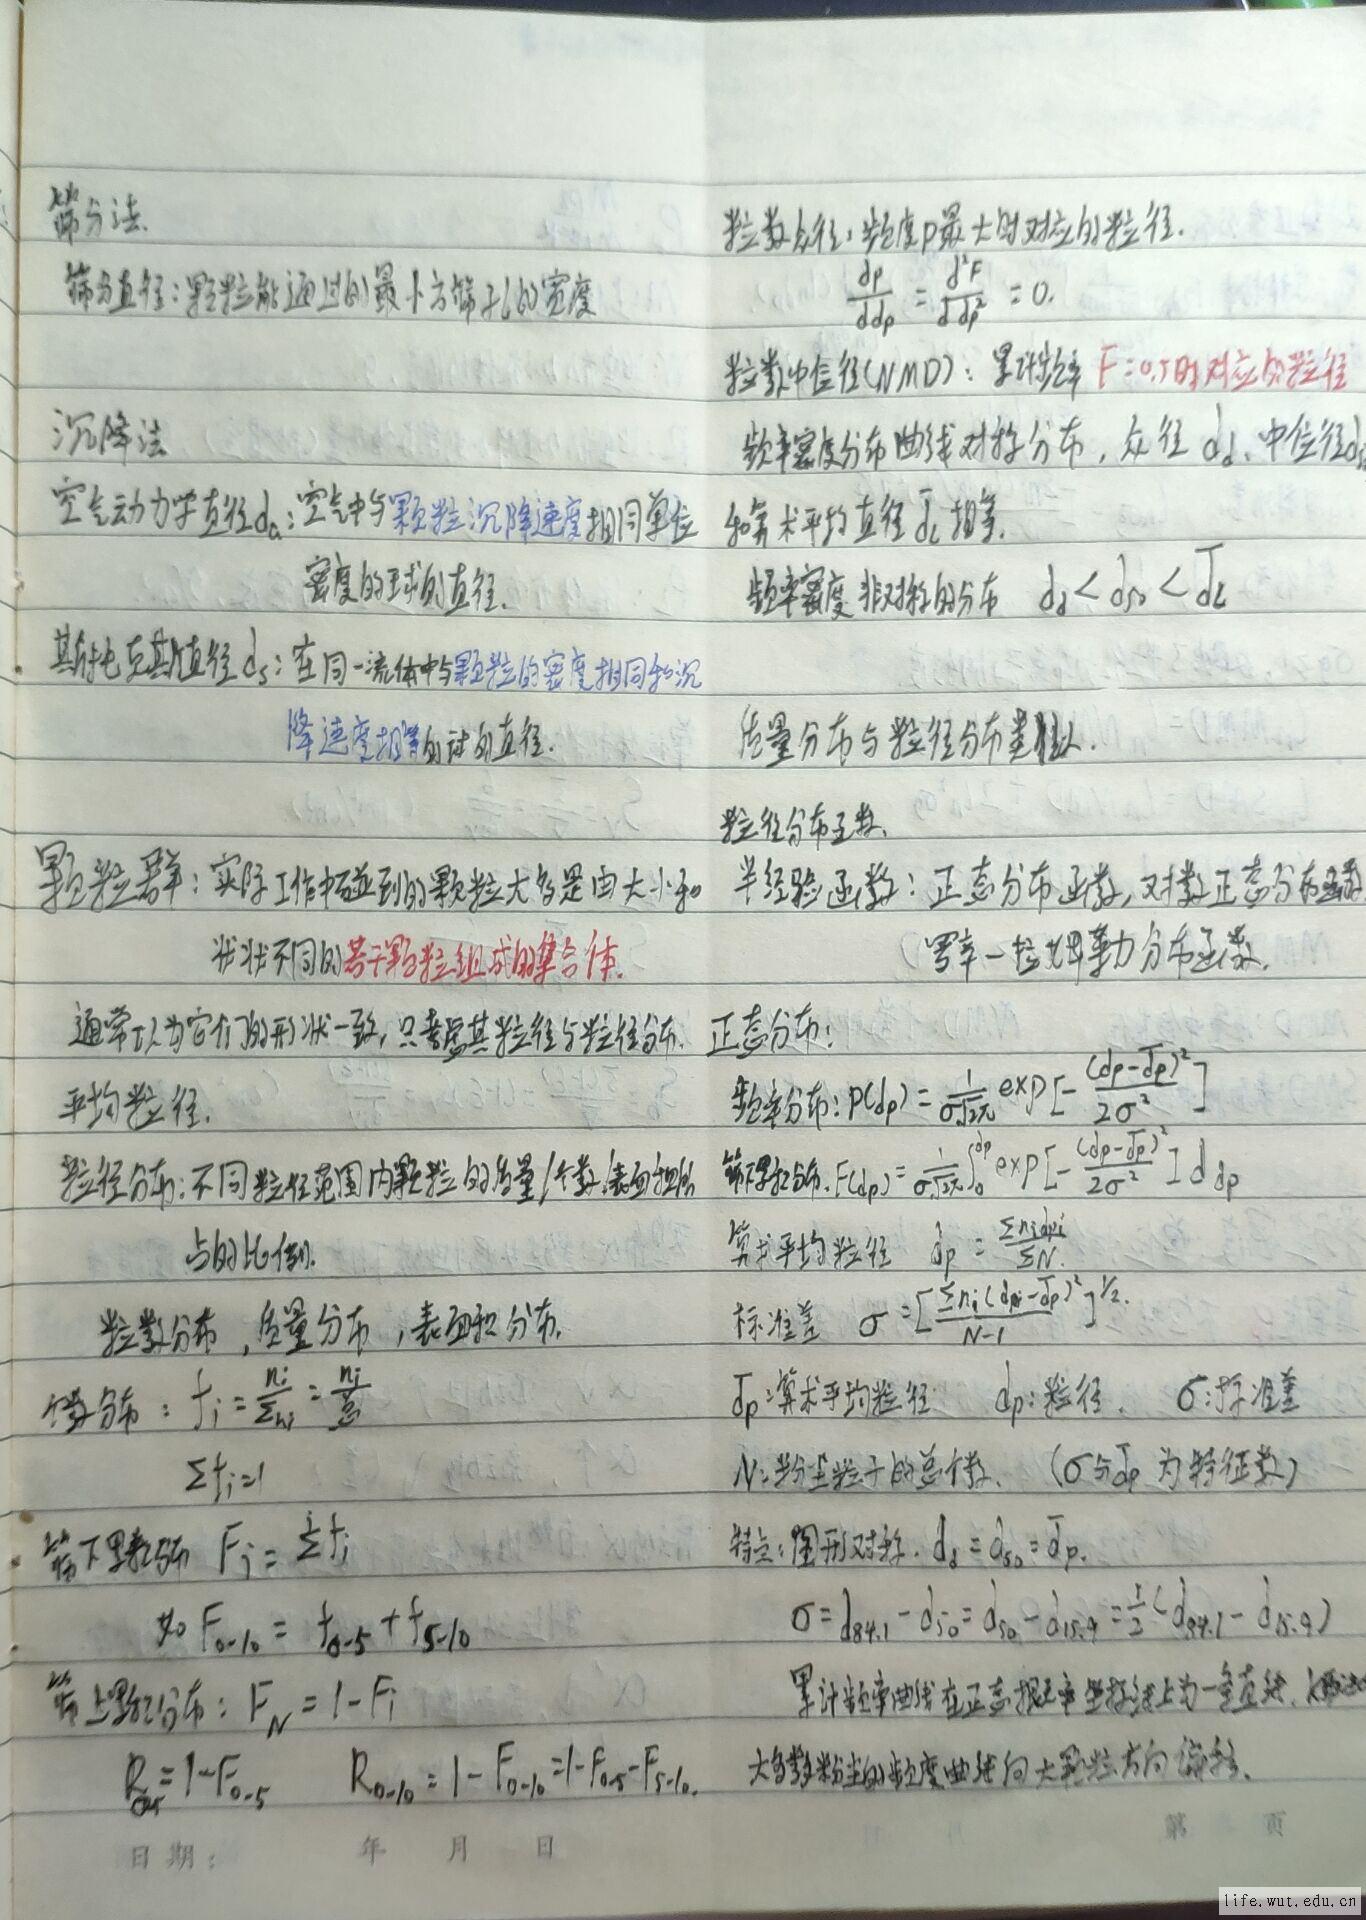 筛分法
筛分直径：颗粒能通过的最小方筛孔的宽度
沉降法
空气动力学直径da：空气中与颗粒沉降速度相同单位
密度的球的直径.
斯托克斯直径ds：在同一流体中与颗粒的密度相同和沉
降速度相等的球的直径.
颗粒群：实际工作中碰到的颗粒大多是由大小和
状状不同的若干颗粒组成的集合体.
通常认为它们的形状一致，只考虑其粒径与粒径分布.
平均粒径.
粒径分布：不同粒径范围内颗粒的质量/个数/表面积所
占的比例.
粒数分布，质量分布，表面积分布.
个数分布： fi = ni/Σni = ni/总
Σfi=1
筛下累积分布 Fi = Σfi
如 F0-10 = f0-5 + f5-10
筛上累积分布：FN = 1-Fi
R0-5 = 1-F0-5 R0-10 = 1-F0-10 = 1-F0-5-F5-10.
粒数众径：频度p最大时对应的粒径.
dp/ddp = d²F/ddp² = 0.
粒数中位径(NMD)：累计频率 F=0.5时对应的粒径
频率密度分布曲线对称分布，众径 dd、中位径d50
和算术平均直径 d̄L 相等.
频率密度非对称的分布 dd < d50 < d̄L
质量分布与粒径分布类似.
粒径分布函数.
半经验函数：正态分布函数，对数正态分布函数
罗辛—拉姆勒分布函数.
正态分布：
频率分布：p(dp) = 1/(σ√2π) exp[-(dp-d̄p)²/2σ²]
筛下累积分布. F(dp) = 1/(σ√2π) ∫0^dp exp[-(dp-d̄p)²/2σ²] d dp
算术平均粒径 d̄p = Σnidpi/ΣN
标准差 σ = [Σni(dpi-d̄p)²/(N-1)]^1/2.
d̄p：算术平均粒径 dp：粒径. σ：标准差
N：粉尘粒子的总个数. (σ与d̄p 为特征数)
特点：图形对称. dd = d50 = d̄p.
σ = d84.1 - d50 = d50 - d15.9 = 1/2(d84.1 - d15.9)
累计频率曲线在正态概率坐标纸上为一条直线.
大多数粉尘的频度曲线向大颗粒方向偏移.
日期： 年 月 日
第 页
life.wut.edu.cn